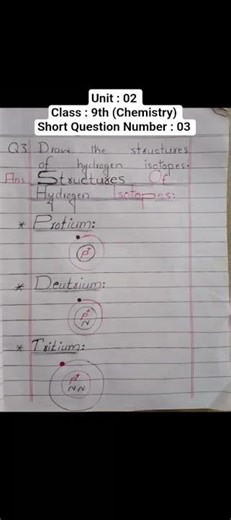 Unit : 02
Class : 9th (Chemistry)
Short Question Number : 03
Q3 Draw the structures
of hydrogen isotopes.
Ans Structures Of
Hydrogen Isotopes:
* Protium:
P⁺
* Deutrium:
P⁺
N
* Tritium:
P⁺
NN